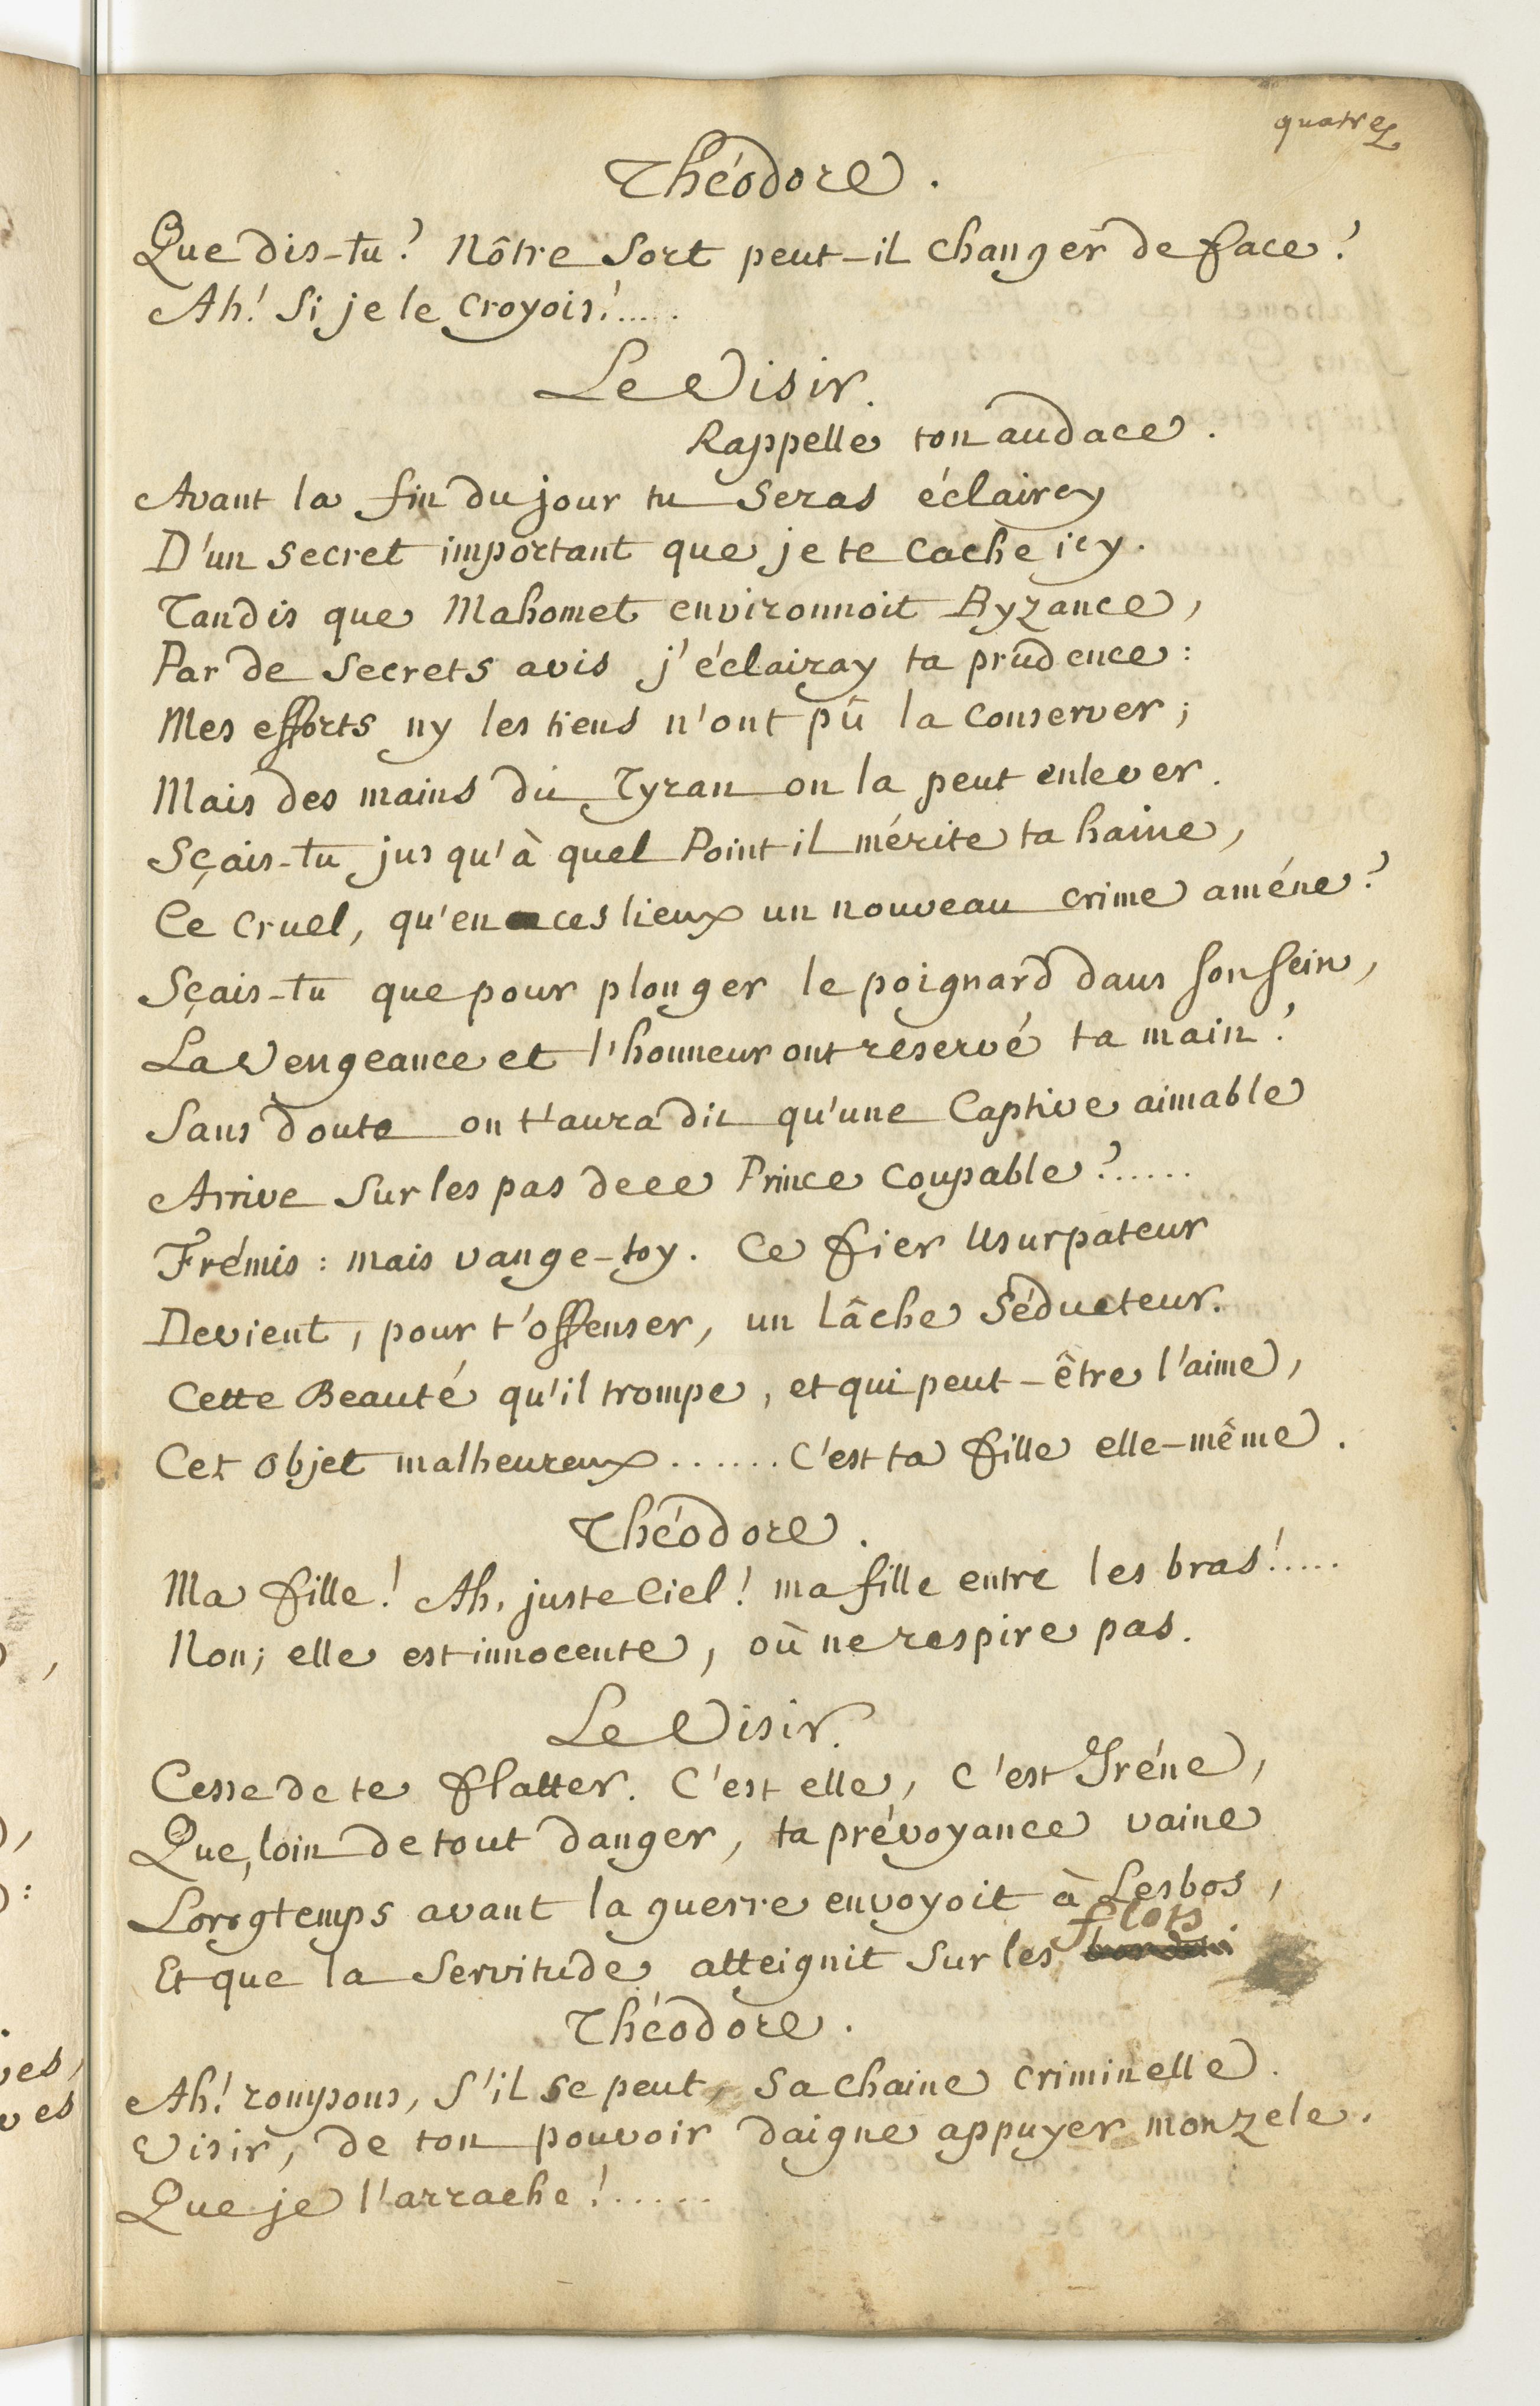 quatre
Théodore.
Que dis-tu? Nôtre Sort peut-il changer de face?
Ah! Si je le croyois!.....
Le Visir.
Rappelle ton audace.
Avant la fin du jour tu Seras éclaircy
D'un Secret important que je te cache icy.
Tandis que Mahomet environnoit Byzance,
Par de Secrets avis j'éclairay ta prudence:
Mes efforts ny les tiens n'ont pû la conserver;
Mais des mains du Tyran on la peut enlever.
Sçais-tu jusqu'à quel Point il mérite ta haine,
Ce Cruel, qu'en ces lieux un nouveau crime améne?
Sçais-tu que pour plonger le poignard dans son sein,
La Vengeance et l'honneur ont réservé ta main?
Sans doute on t'aura dit qu'une Captive aimable
Arrive Sur les pas de ce Prince coupable?......
Frémis: mais vange-toy. Ce fier Usurpateur
Devient, pour t'offenser, un Lâche Séducteur.
Cette Beauté qu'il trompe, et qui peut-être l'aime,
Cet objet malheureux....... C'est ta fille elle-même.
Théodore.
Ma fille! Ah, juste Ciel! ma fille entre les bras!.....
Non; elle est innocente, où ne respire pas.
Le Visir.
Cesse de te flatter. C'est elle, c'est Iréne,
Que, loin de tout danger, ta prévoyance vaine
Longtemps avant la guerre envoyoit à Lesbos,
Et que la Servitude atteignit Sur les flots.
Théodore.
Ah! rompons, S'il se peut, Sa chaine criminelle.
Visir, de ton pouvoir daigne appuyer mon zele.
Que je l'arrache!......